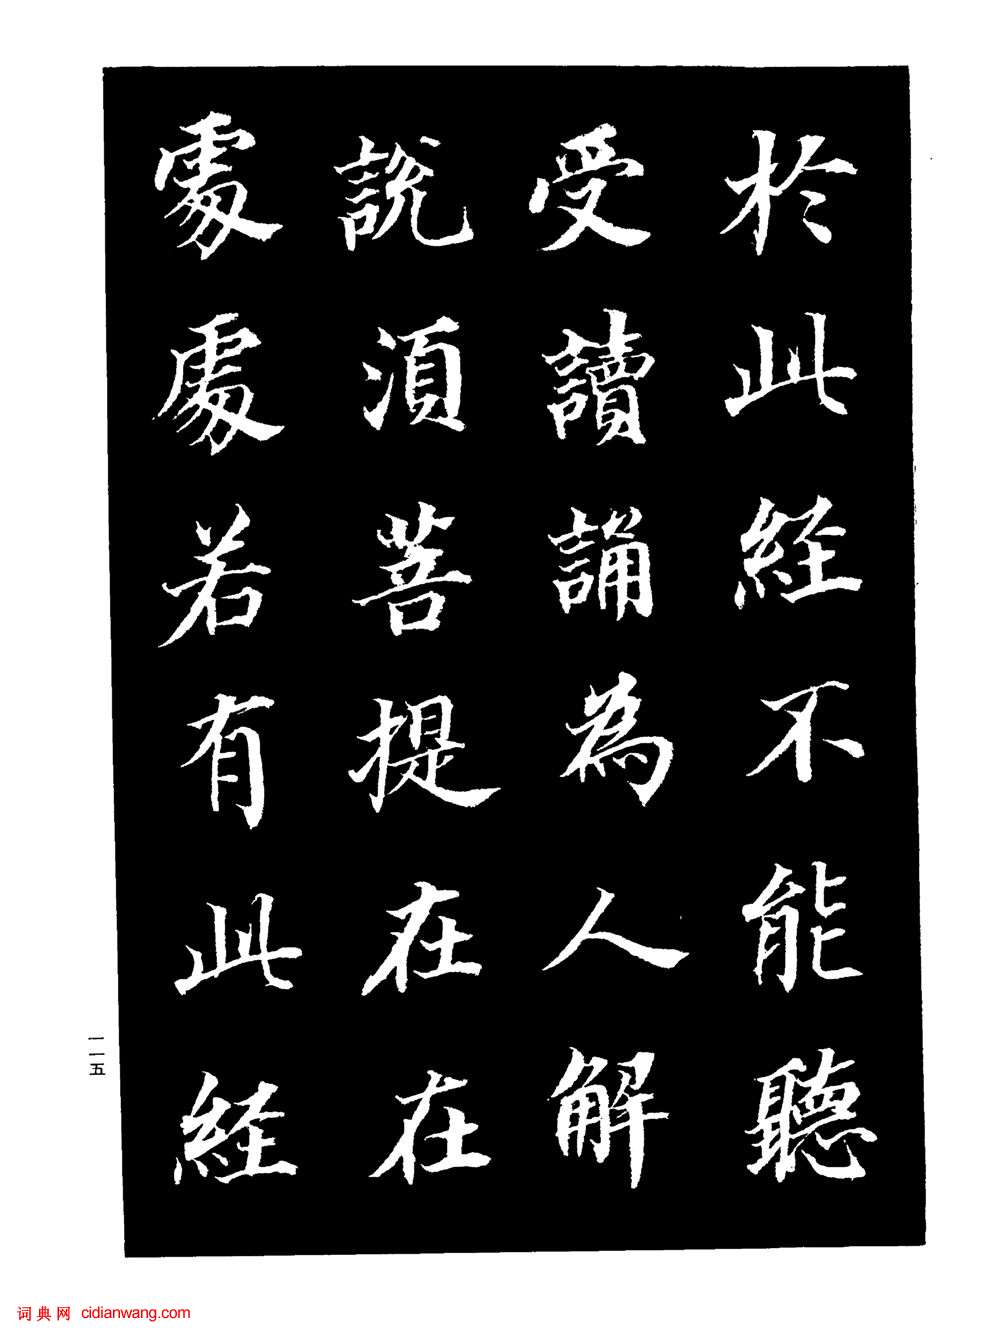 於此経不能聽
受讀誦為人解
説須菩提在在
處處若有此経
一一五
词典网 cidianwang.com